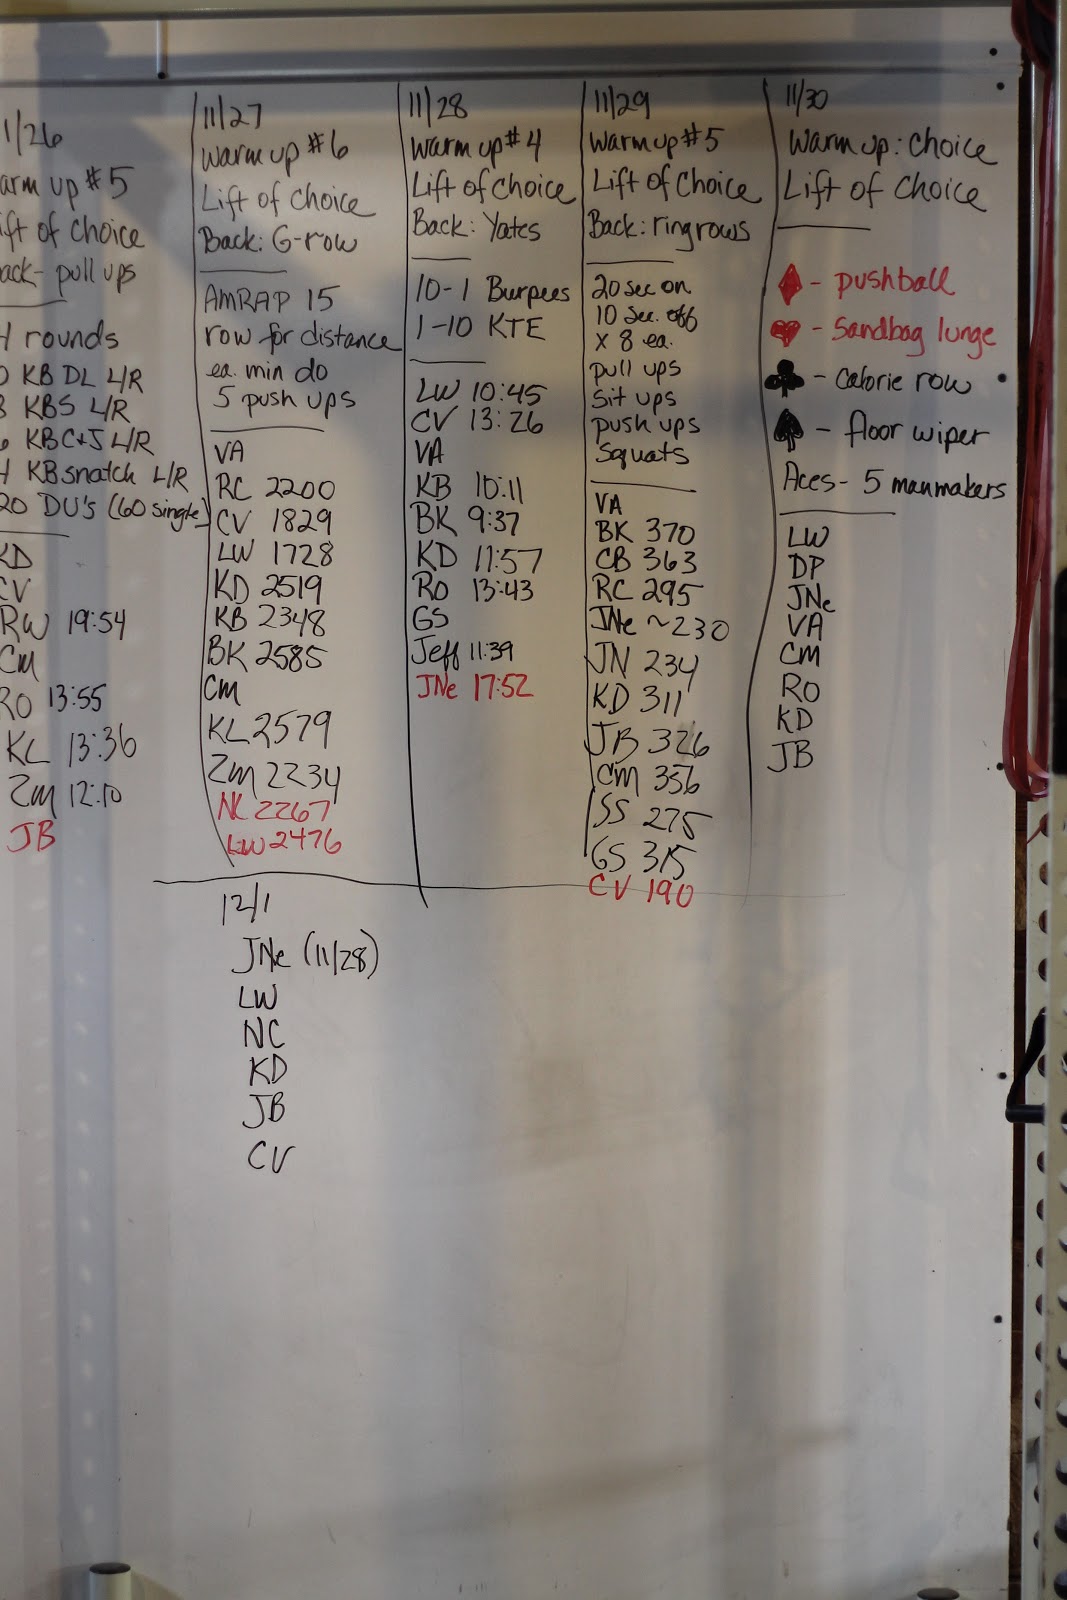 1/26
arm up #5
ift of choice
ack- pull ups
4 rounds
0 KB DL L/R
8 KBS L/R
6 KB C+J L/R
4 KB snatch L/R
20 DU's (60 single)
KD
CV
RW 19:54
CM
RO 13:55
KL 13:36
ZM 12:10
JB
11/27
Warm up #6
Lift of Choice
Back: G-row
AMRAP 15
row for distance
ea. min do
5 push ups
VA
RC 2200
CV 1829
LW 1728
KD 2519
KB 2348
BK 2585
CM
KL 2579
ZM 2234
NC 2267
LW 2476
11/28
Warm up #4
Lift of Choice
Back: Yates
10-1 Burpees
1-10 KTE
LW 10:45
CV 13:26
VA
KB 10:11
BK 9:37
KD 11:57
RO 13:43
GS
Jeff 11:39
JNe 17:52
11/29
Warm up #5
Lift of Choice
Back: ring rows
20 sec on
10 sec. off
x 8 ea.
pull ups
sit ups
push ups
squats
VA
BK 370
CB 363
RC 295
JNe ~230
JN 234
KD 311
JB 326
CM 356
SS 275
GS 315
CV 190
11/30
Warm up: Choice
Lift of Choice
♦ - pushball
♥ - Sandbag lunge
♣ - Calorie row
♠ - floor wiper
Aces- 5 manmakers
LW
DP
JNe
VA
CM
RO
KD
JB
12/1
JNe (11/28)
LW
NC
KD
JB
CV